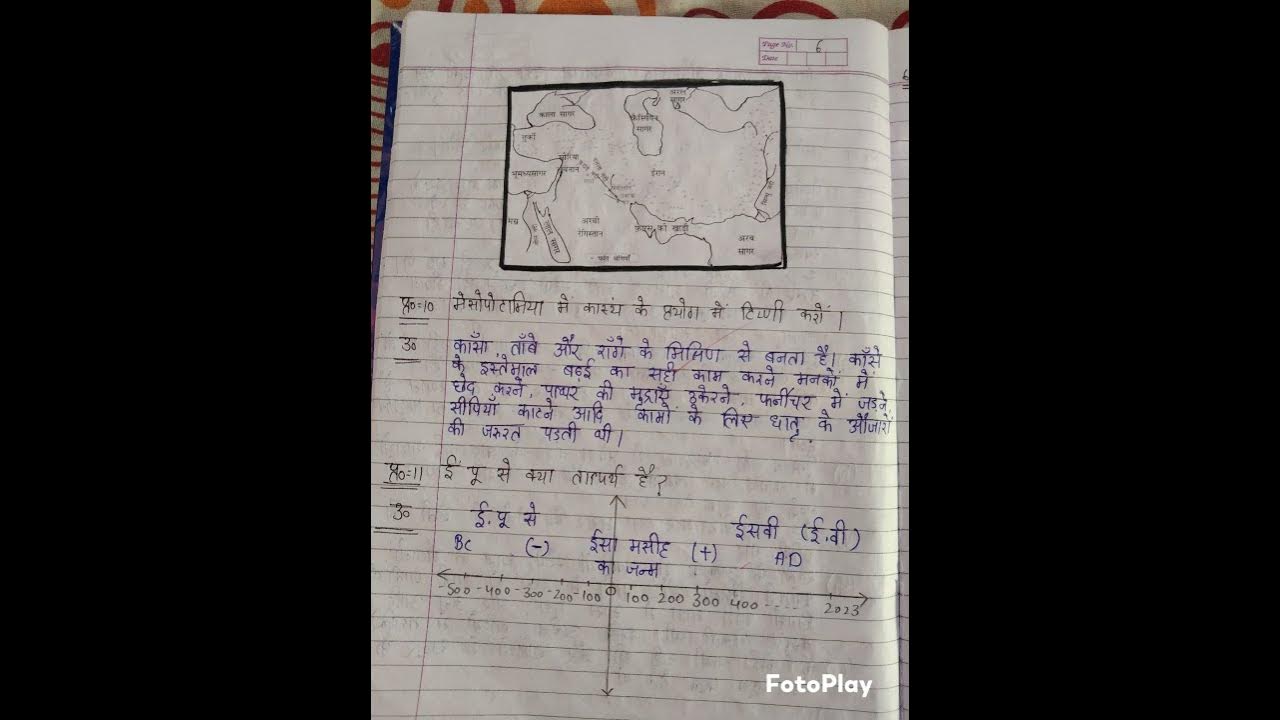 Page No. 6
Date
काला सागर
अरल
सागर
कैस्पियन
सागर
तुर्की
सीरिया
भूमध्यसागर
ईरान
लाल सागर
अरबी
रेगिस्तान
फ़ारस की खाड़ी
अरब
सागर
प्र०=10 मेसोपोटामिया में कास्यं के प्रयोग में टिप्णी करों।
उ० काँसा, ताँबे और राँगे के मिश्रिण से बनता है। काँसे
के इस्तेमाल बढ़ई का सही काम करने मनकों में
छेद करने, पाथर की मुद्राएँ उकेरने, फर्नीचर में जडने,
सीपियाँ काटने आदि कामों के लिए धातु के औजारों
की जरुरत पडती थी।
प्र०=11 ई पू से क्या तात्पर्य है?
उ० ई. पू से ईसवी (ई.वी)
BC (-) ईसा मसीह (+) AD
का जन्म
-500 -400 -300 -200 -100 0 100 200 300 400 ---- 2023
FotoPlay